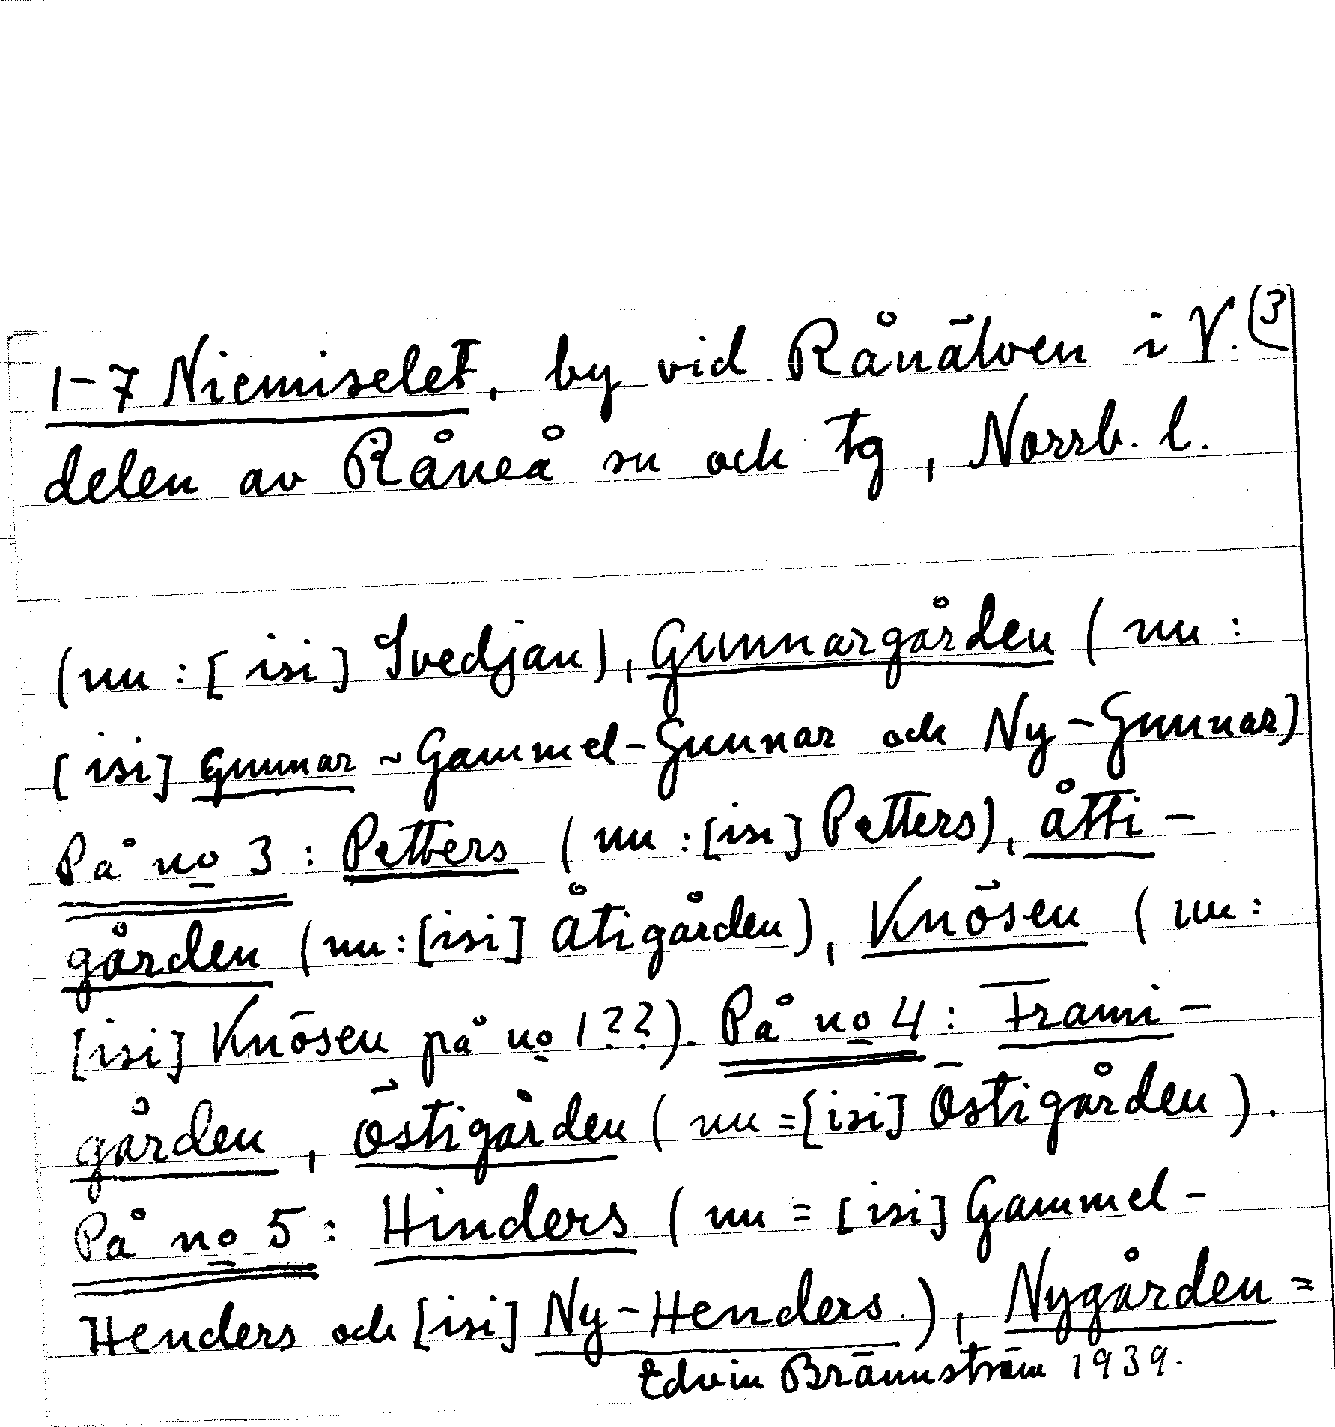 1-7 Niemiselet, by vid Rånälven i V. (3
delen av Råneå sn och tg, Norrb. l.
(nu : [isi] Svedjan), Gunnargården (nu :
[isi] Gunnar ~ Gammel-Gunnar och Ny-Gunnar)
På no 3 : Petters (nu : [isi] Petters), Åtti-
gården (nu : [isi] Åtigården), Knösen (nu :
[isi] Knösen på no 1??). På no 4 : Frami-
gården, Östigården (nu = [isi] Östigården).
På no 5 : Hinders (nu = [isi] Gammel-
Henders och [isi] Ny-Henders.), Nygården =
Edvin Brännström 1939.